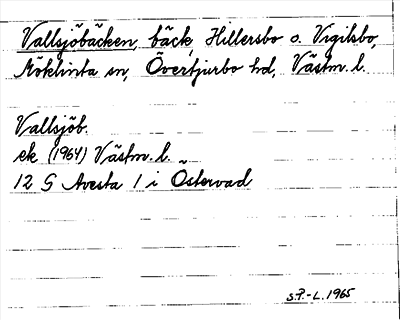 Vallsjöbäcken, bäck, Hillersbo o. Vigilsbo,
Möklinta sn, Övertjurbo hd, Västm. l.
Vallsjöb.
ek (1964) Västm. l.
12 G Avesta 1 i Östervad
S.P.-L. 1965